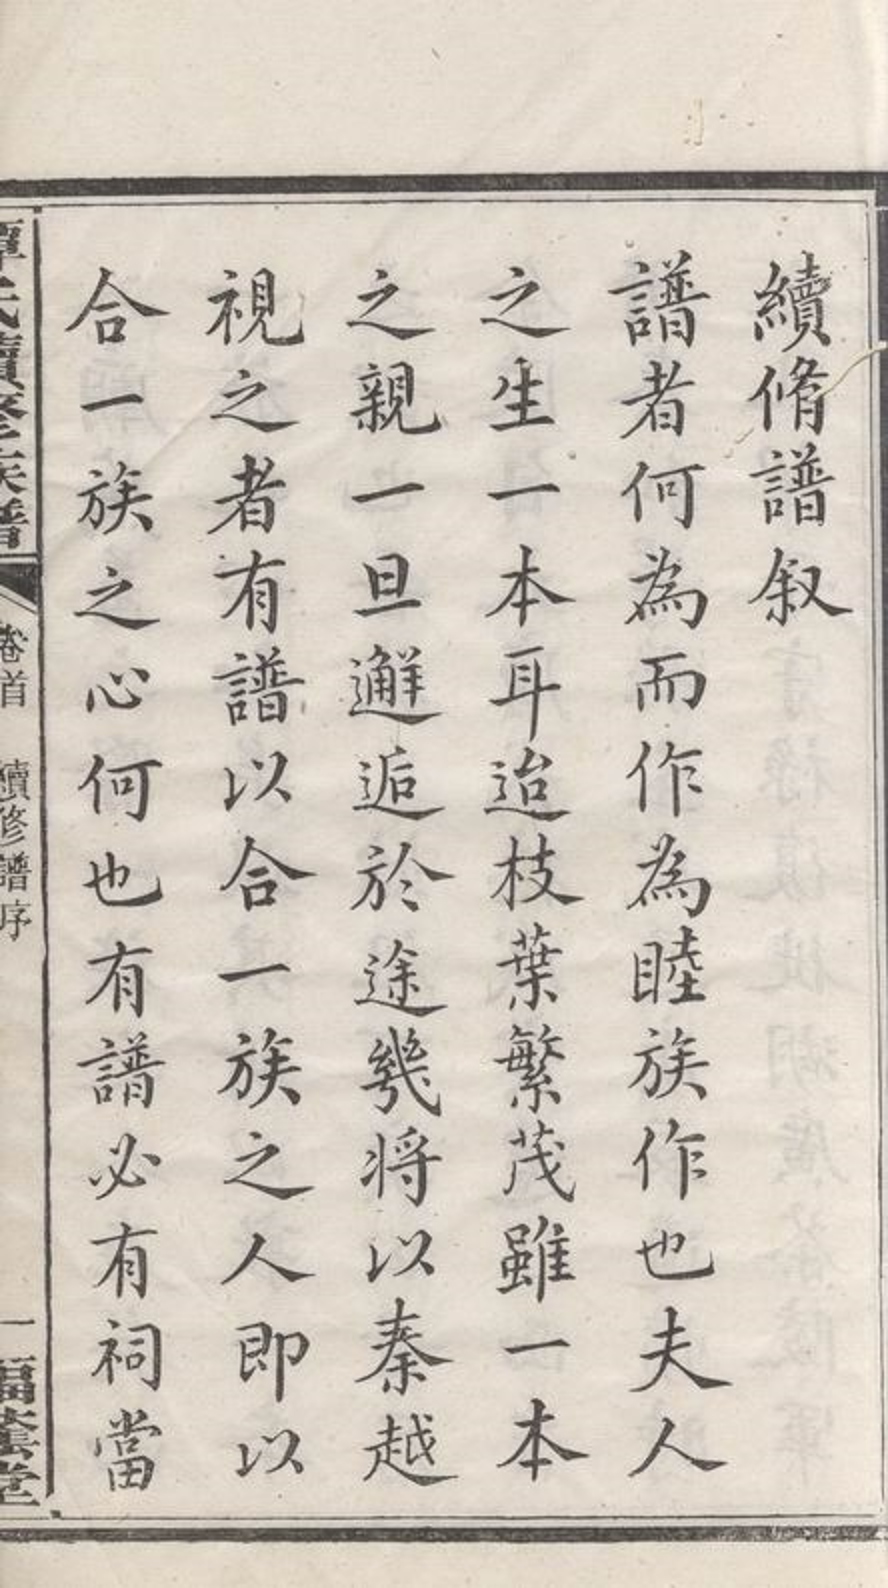 續脩譜叙
譜者何為而作為睦族作也夫人
之生一本耳迨枝葉繁茂雖一本
之親一旦邂逅於途幾將以秦越
視之者有譜以合一族之人即以
合一族之心何也有譜必有祠當
譚氏續修族譜
卷首 續修譜序
一